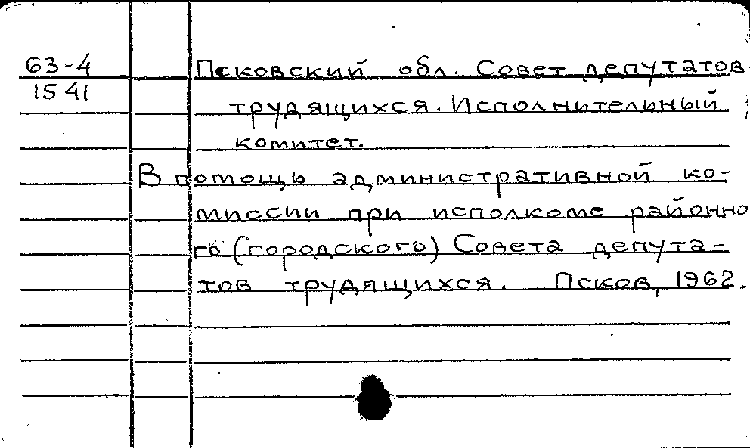 63-4
1541
Псковский обл. Совет депутатов
трудящихся. Исполнительный
комитет.
В помощь административной ко-
миссии при исполкоме районно
го (городского) Совета депута-
тов трудящихся. Псков, 1962.